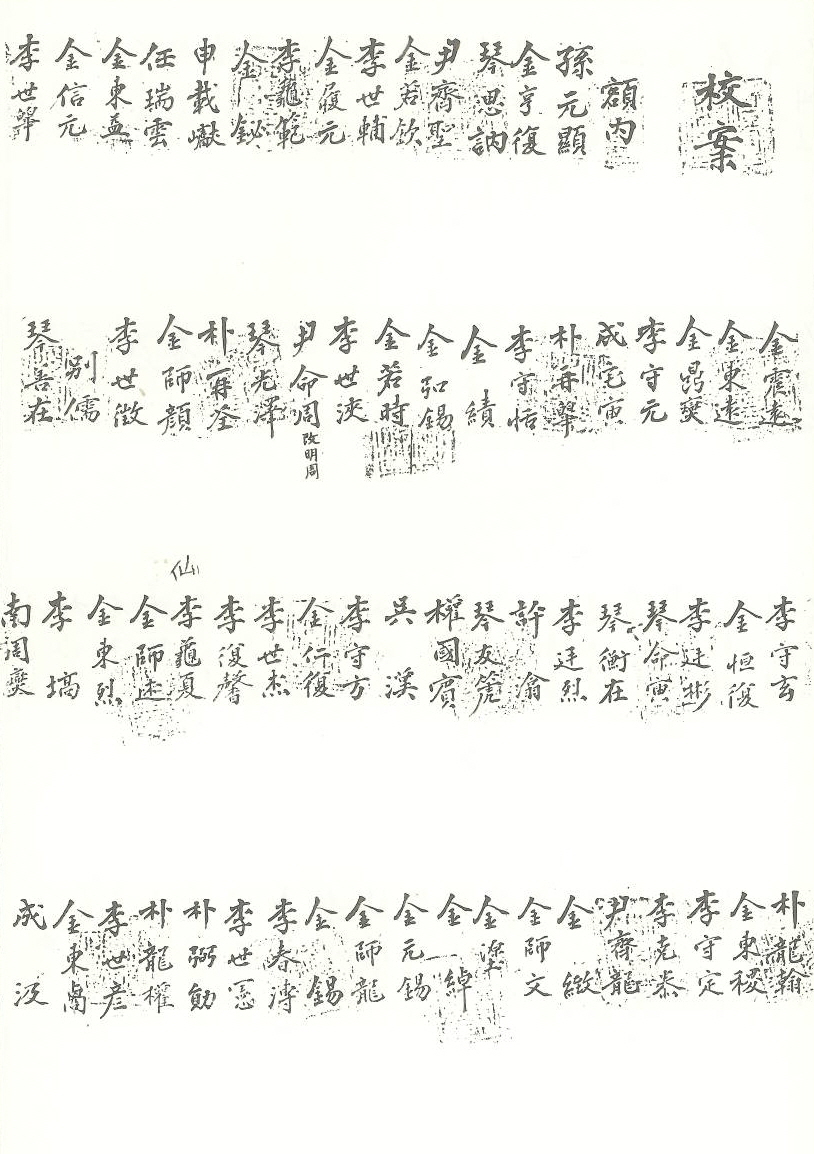 校案
額內
孫元顯
金亨復
琴思訥
尹齊聖
金若欽
李世輔
金履元
李龜範
金鉍
申載巘
任瑞雲
金東益
金信元
李世
金東遠
金
李守元
成寅
朴
李守恬
金績
金弘錫
金若時
李世浹
尹命周 改明周
琴光澤
朴
金師顔
李世徵
別儒
琴善在
李守玄
金恒復
李廷彬
琴命寅
琴衡在
李廷烈
許滃
琴友
權國賓
吳漢
李守方
金行復
李世杰
李復馨
李龜夏
仙
金師述
金東烈
李塙
南周
朴龍翰
金東稷
李守定
李克泰
尹齊龍
金緻
金師文
金
金綽
金元錫
金師龍
金錫
李春溥
李世憲
朴弼勛
朴龍權
李世彦
金東卨
成汲